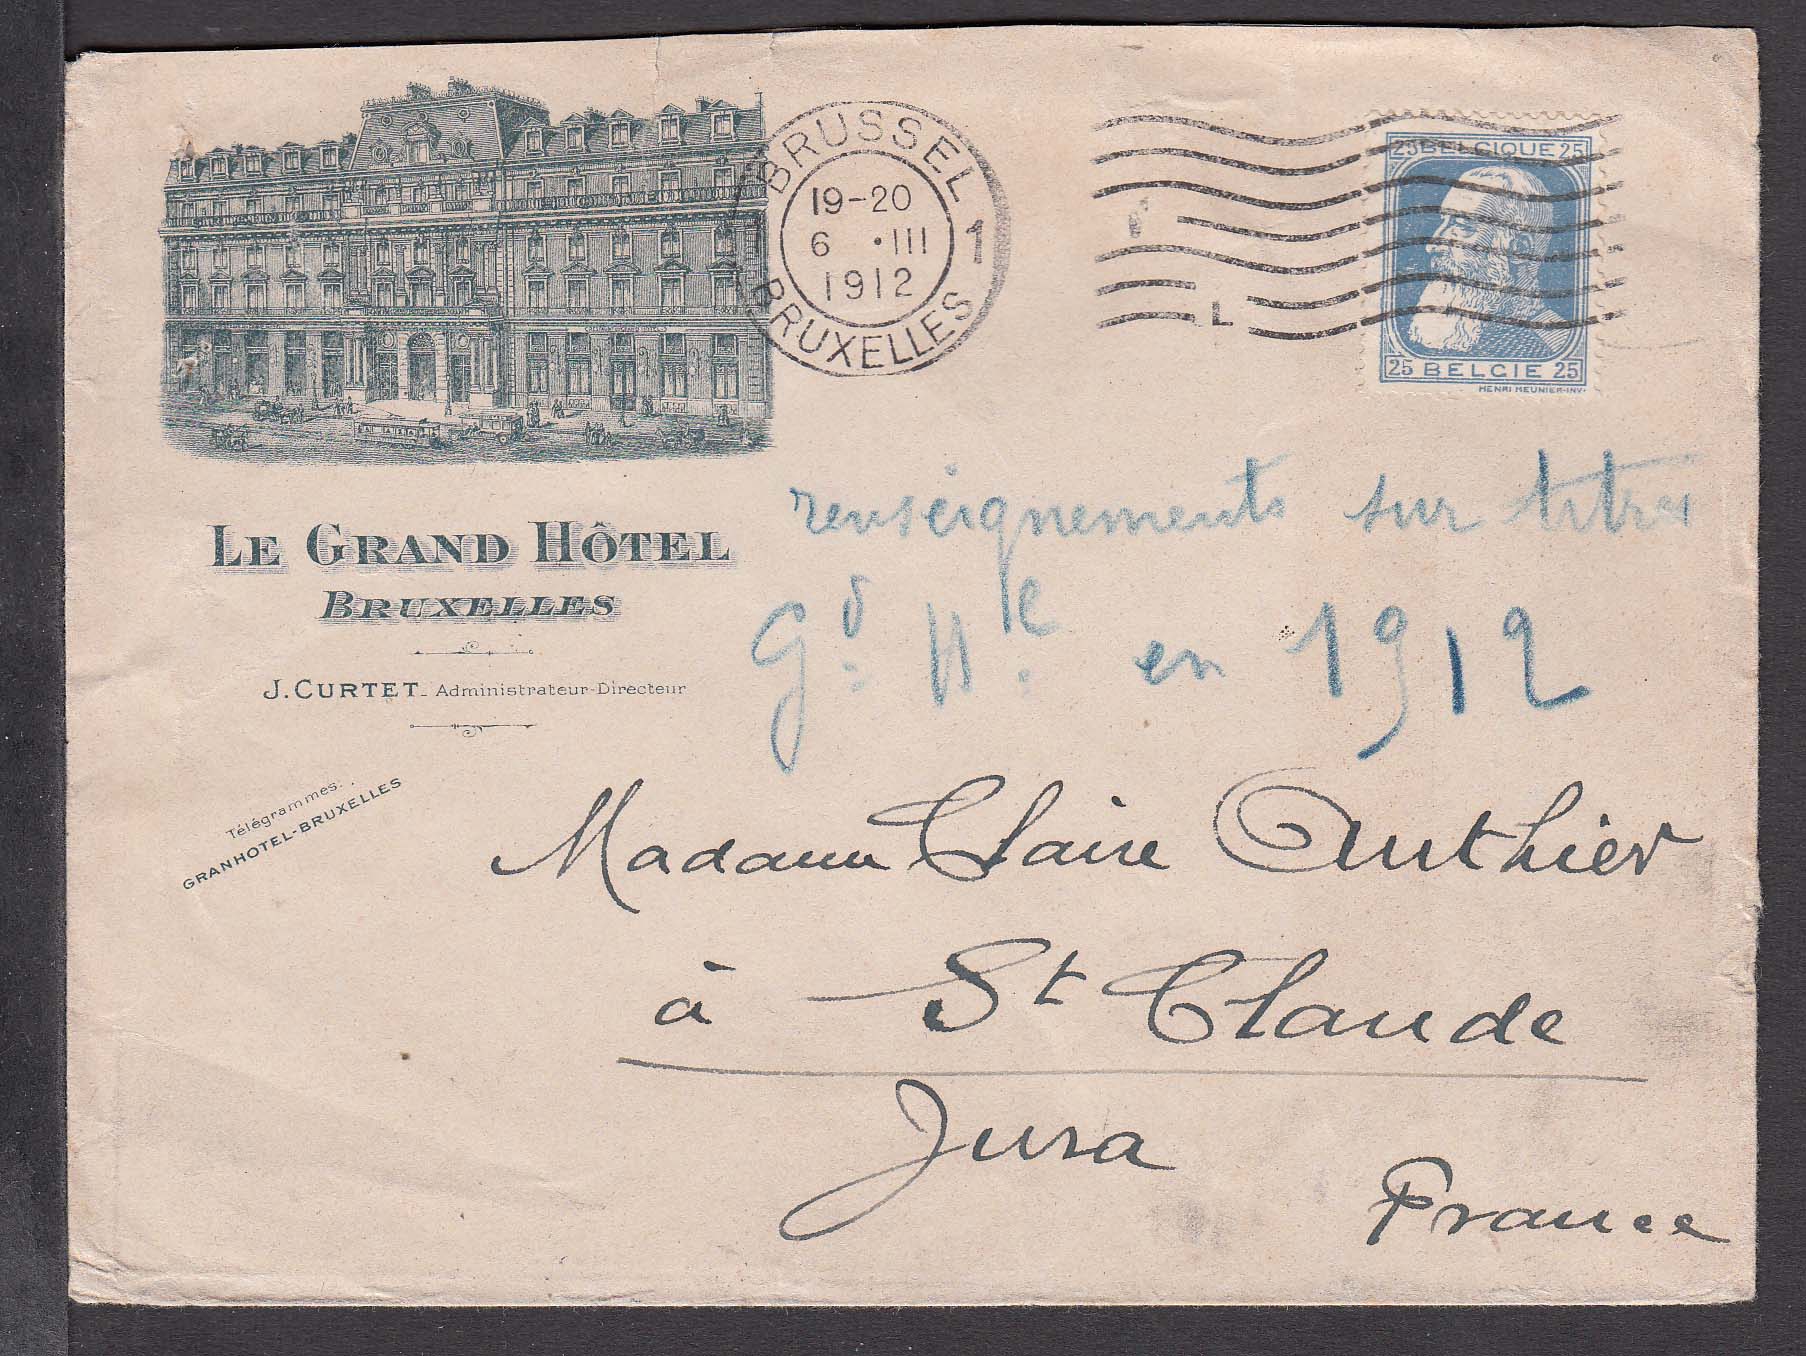 BRUSSEL 1
19-20
6 • III
1912
BRUXELLES
L
25 BELGIQUE 25
25 BELGIE 25
HENRI MEUNIER-INV.
LE GRAND HÔTEL
BRUXELLES
J. CURTET_ Administrateur-Directeur
Télégrammes:
GRANHOTEL-BRUXELLES
renseignements sur titres
Gd. H.el en 1912
Madame Claire Authier
à St Claude
Jura
France